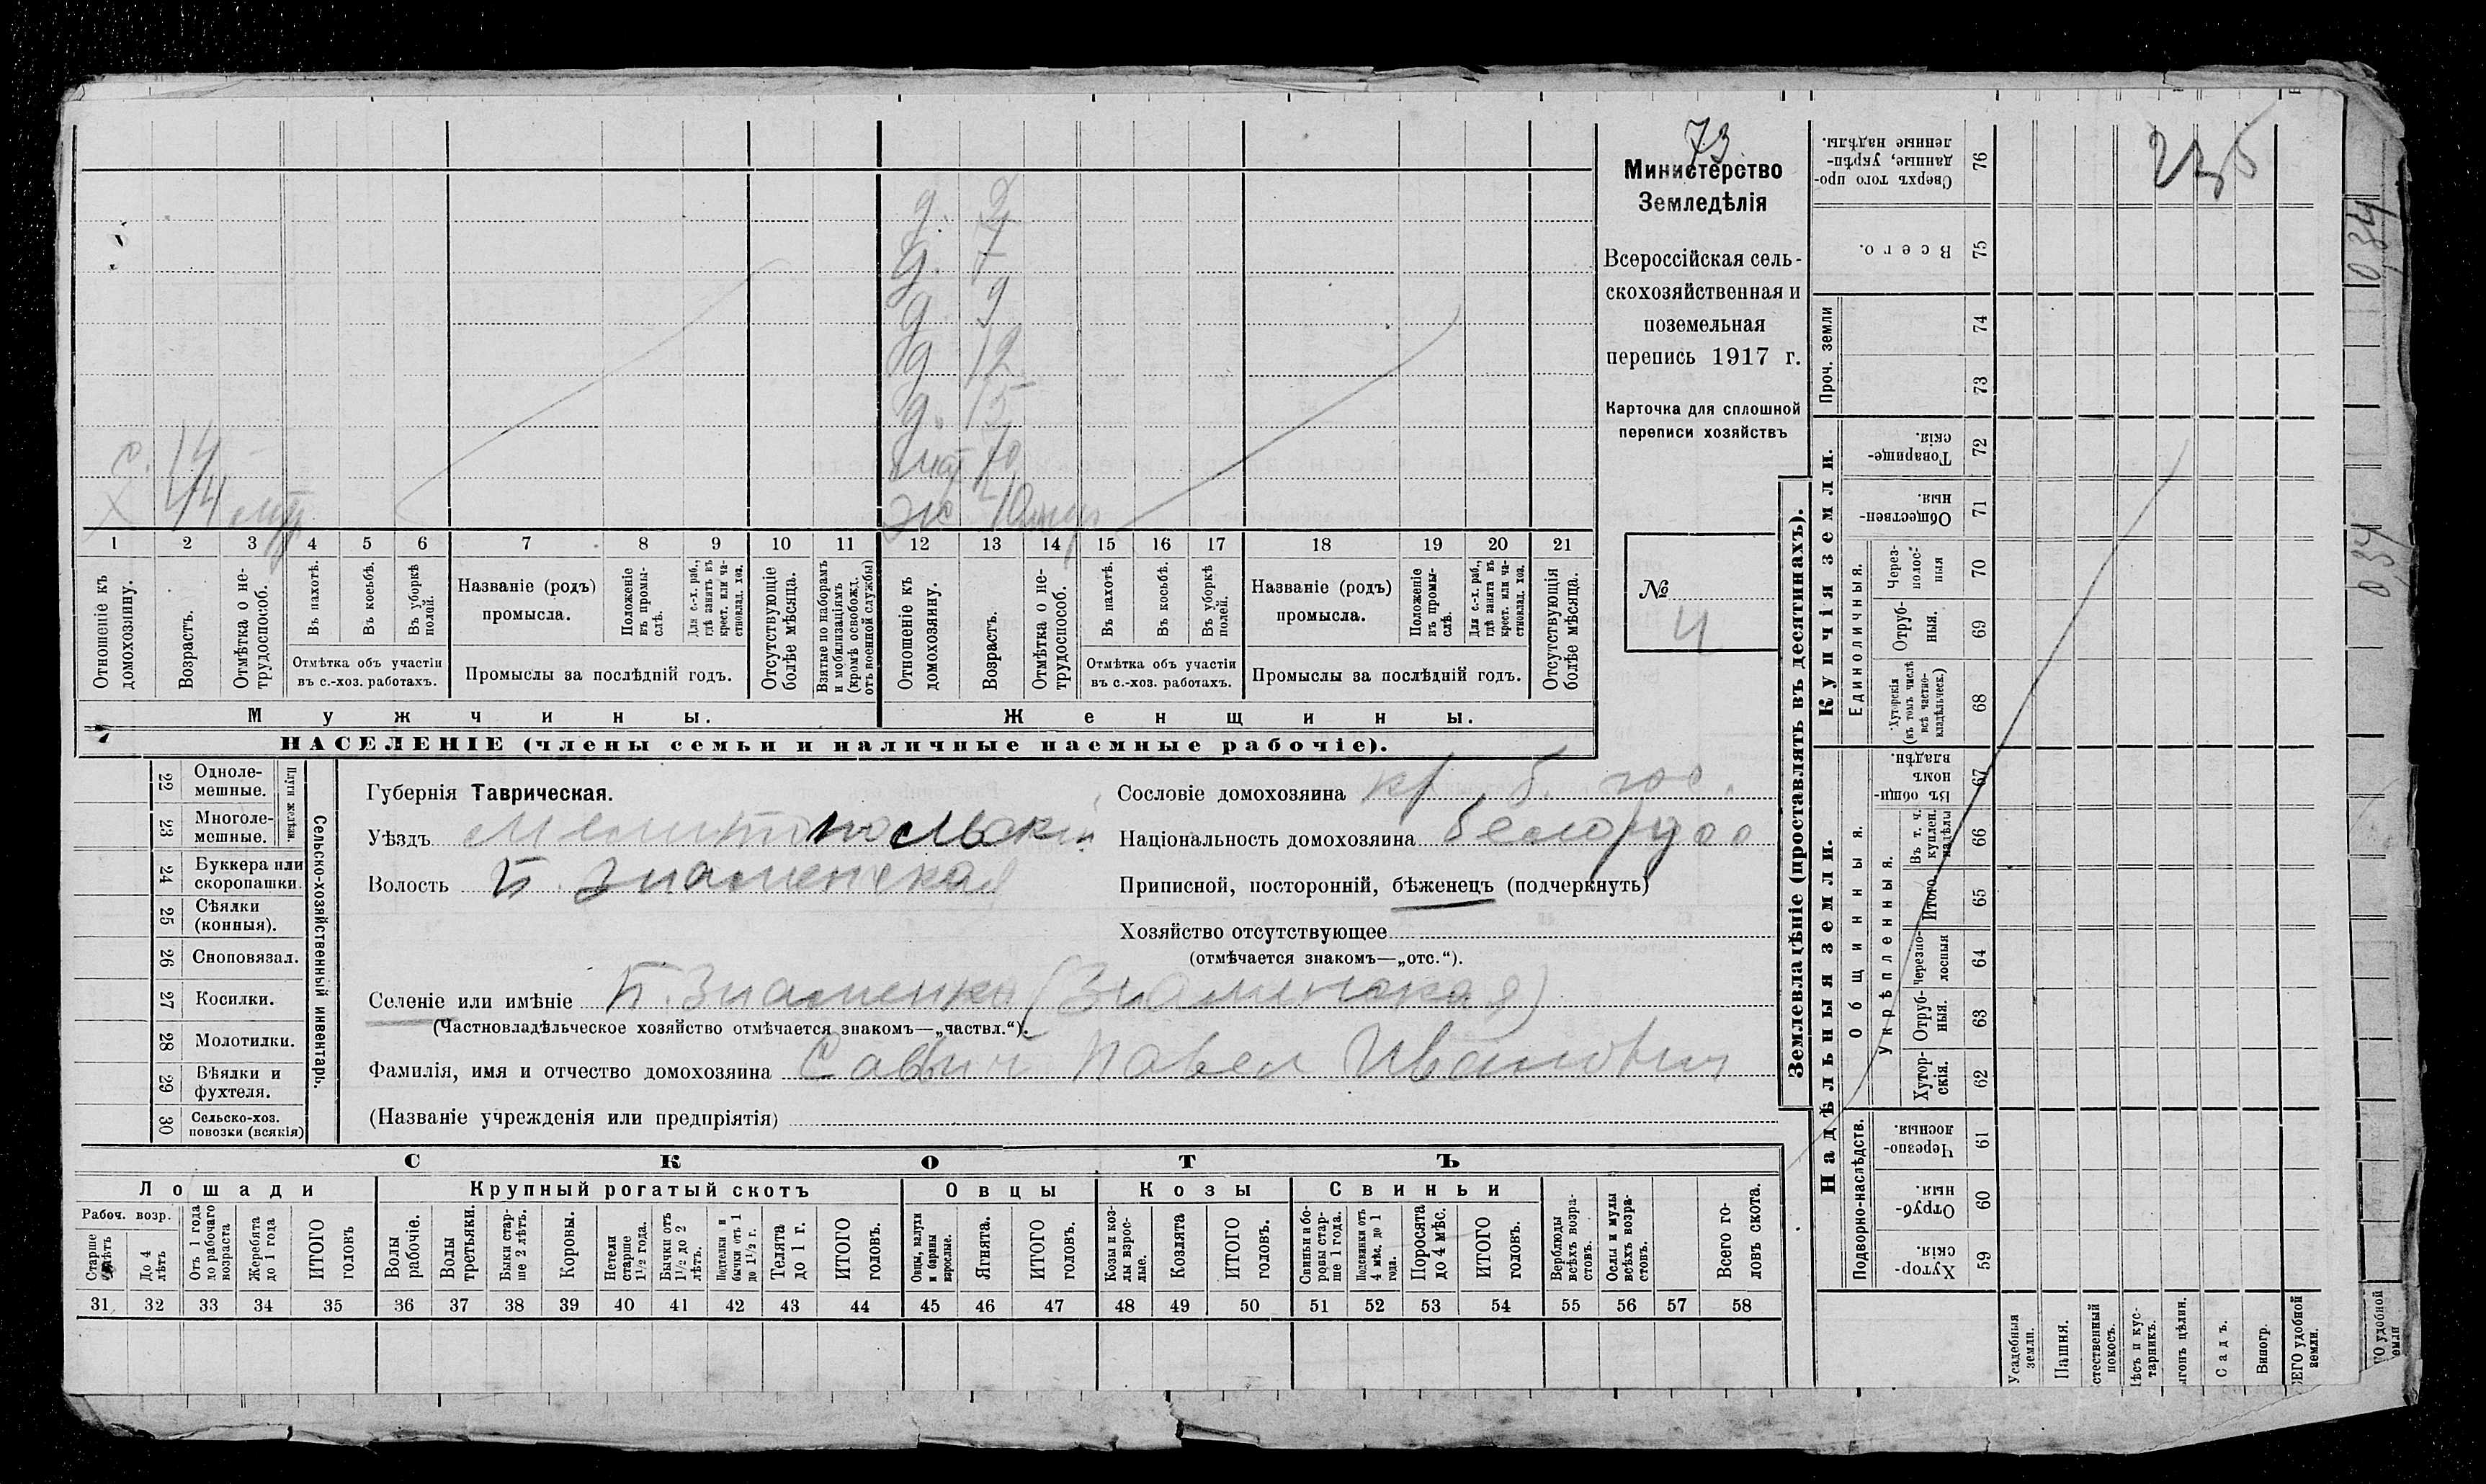 73.
Министерство
Земледѣлія
Всероссійская сель-
скохозяйственная и
поземельная
перепись 1917 г.
Карточка для сплошной
переписи хозяйствъ
№
4
д. 2
д. 7
д 9
д 12
д. 15
с. 14
мат 70
х 44
ж 40
1 2 3 4 5 6 7 8 9 10 11 12 13 14 15 16 17 18 19 20 21
Отношеніе къ домохозяину.
Возрастъ.
Отмѣтка о не-трудоспособ.
Въ пахотѣ.
Въ косьбѣ.
Въ уборкѣ полей.
Отмѣтка объ участіи
въ с.-хоз. работахъ.
Названіе (родъ)
промысла.
Положеніе въ промы-слѣ.
Для с.-х. раб., гдѣ занятъ въ крест. или ча-стновлад. хоз.
Промыслы за послѣдній годъ.
Отсутствующіе болѣе мѣсяца.
Взятые по наборамъ и мобилизаціямъ (кромѣ освобожд. отъ военной службы)
Отношеніе къ домохозяину.
Возрастъ.
Отмѣтка о не-трудоспособ.
Въ пахотѣ.
Въ косьбѣ.
Въ уборкѣ полей.
Отмѣтка объ участіи
въ с.-хоз. работахъ.
Названіе (родъ)
промысла.
Положеніе въ промы-слѣ.
Для с.-х. раб., гдѣ занята въ крест. или ча-стновлад. хоз.
Промыслы за послѣдній годъ.
Отсутствующія болѣе мѣсяца.
Мужчины.
Женщины.
НАСЕЛЕНІЕ (члены семьи и наличные наемные рабочіе).
22 Одноле-мешные.
23 Многоле-мешные.
Плуги желѣзн.
24 Буккера или скоропашки.
25 Сѣялки (конныя).
26 Сноповязал.
27 Косилки.
28 Молотилки.
29 Вѣялки и фухтеля.
30 Сельско-хоз. повозки (всякія)
Сельско-хозяйственный инвентарь.
Губернія Таврическая.
Уѣздъ Мелитопольскій
Волость Б. Знаменская
Сословіе домохозяина кр. б. пос.
Національность домохозяина белорусс
Приписной, посторонній, бѣженецъ (подчеркнуть)
Хозяйство отсутствующее
(отмѣчается знакомъ—„отс.“).
Селеніе или имѣніе Б. Знаменка (Знаменская)
(Частновладѣльческое хозяйство отмѣчается знакомъ—„частвл.“).
Фамилія, имя и отчество домохозяина Саввич Павел Иванович
(Названіе учрежденія или предпріятія)
СКОТЪ
Лошади
Крупный рогатый скотъ
Овцы
Козы
Свиньи
Рабоч. возр.
Старше лѣтъ
До 4 лѣтъ
Отъ 1 года до рабочаго возраста
Жеребята до 1 года
ИТОГО головъ
Волы рабочіе.
Волы третьяки.
Быки стар-ше 2 лѣтъ.
Коровы.
Нетели старше 1½ года.
Бычки отъ 1½ до 2 лѣтъ.
Подтелки и бычки отъ 1 до 1½ г.
Телята до 1 г.
ИТОГО головъ.
Овцы, валухи и бараны взрослые.
Ягнята.
ИТОГО головъ.
Козы и коз-лы взрос-лые.
Козлята
ИТОГО головъ.
Свиньи и бо-ровы стар-ше 1 года.
Подсвинки отъ 4 мѣс. до 1 года.
Поросята до 4 мѣс.
ИТОГО головъ.
Верблюды всѣхъ возра-стовъ.
Ослы и мулы всѣхъ возра-стовъ.
Всего го-ловъ скота.
31 32 33 34 35 36 37 38 39 40 41 42 43 44 45 46 47 48 49 50 51 52 53 54 55 56 57 58
Землевладѣніе (проставлять въ десятинахъ).
Надѣльныя земли.
Купчія земли.
Проч. земли
Сверхъ того про-данные, укрѣп-ленные надѣлы. 76
Всего. 75
74
73
Товарище-скія. 72
Обществен-ныя. 71
Единоличныя.
Через-полос-ныя 70
Отруб-ныя. 69
Хуторскія (въ томъ числѣ всѣ частно-владѣльческ.) 68
Общинныя.
Въ общи-номъ владѣн. 67
Укрѣпленныя.
Въ т. ч. куплен. надѣлы 66
Итого. 65
Черезпо-лосныя 64
Отруб-ныя. 63
Хутор-скія. 62
Подворно-наслѣдств.
Черезпо-лосныя. 61
Отруб-ныя. 60
Хутор-скія. 59
Усадебныя земли.
Пашня.
стественный покосъ.
ѣсъ и кус-тарникъ.
ыгонъ цѣлин.
Садъ.
Виногр.
ЕГО удобной земли.
235
1034
034
ГО удобной земли